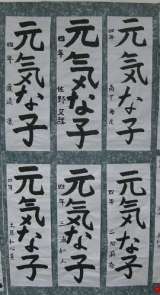 元気な子
四年
元気な子
四年
元気な子
四年
元気な子
四年
元気な子
四年
元気な子
四年